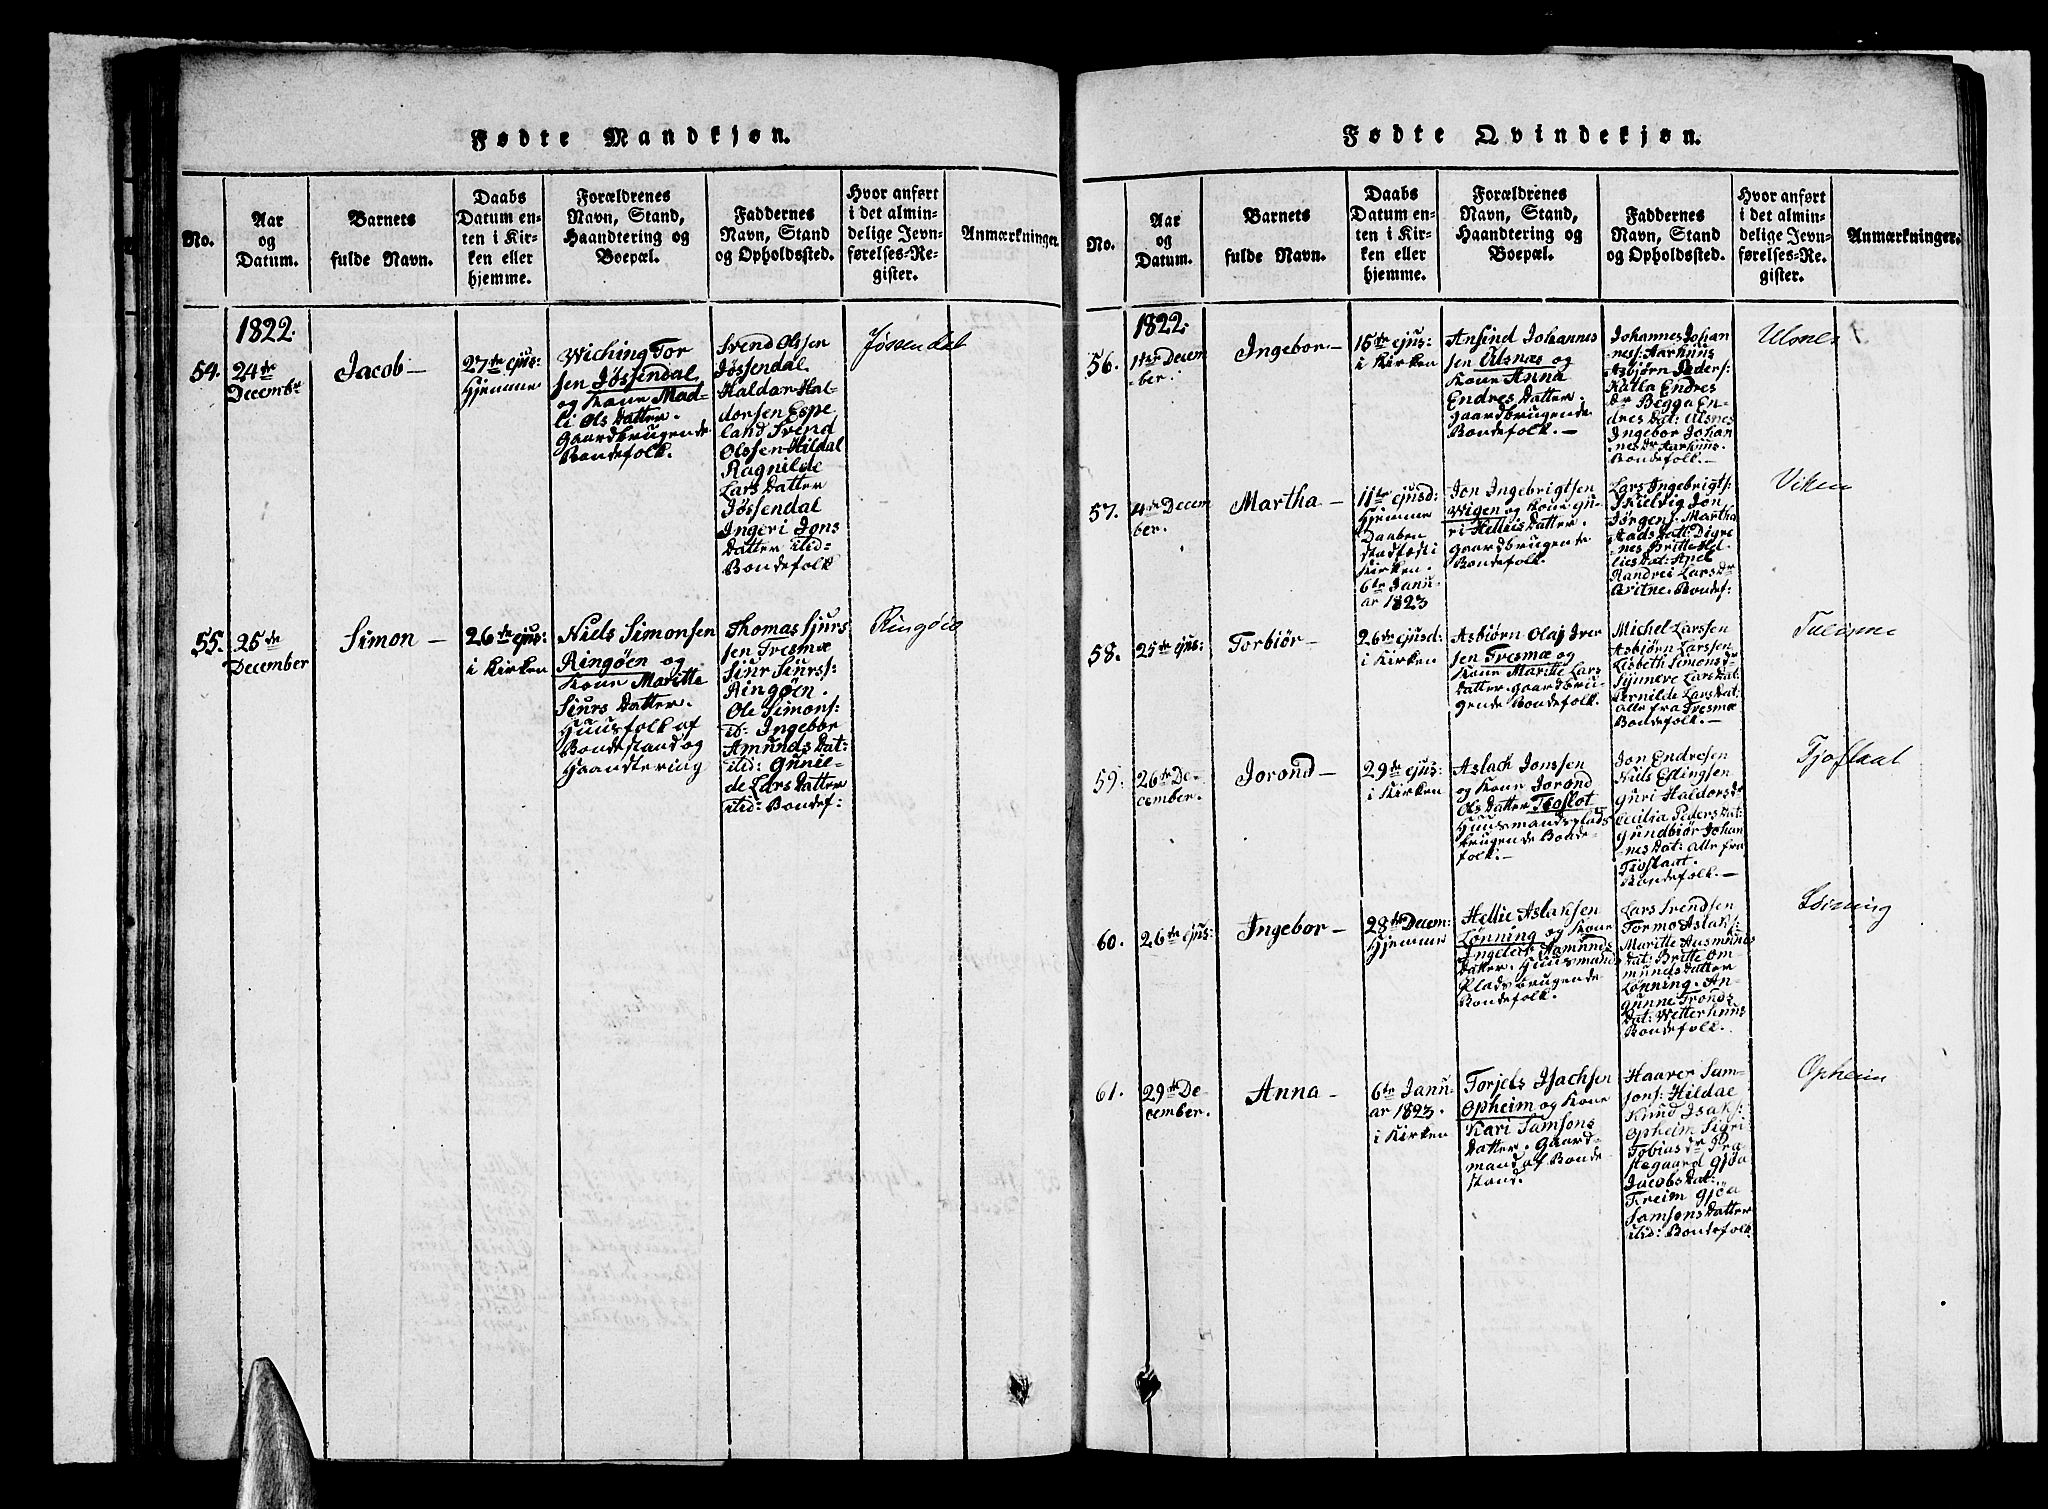 Fødte Mandkjøn.
No.
Aar
og
Datum.
Barnets
fulde Navn.
Daabs
Datum en-
ten i Kir-
ken eller
hjemme.
Forældrenes
Navn, Stand,
Haandtering og
Boepæl.
Faddernes
Navn, Stand
og Opholdssted.
Hvor anført
i det almin-
delige Jevn-
førelses-Re-
gister.
Anmærkninger.
1822.
54.
24de
Decembr
Jacob —
27de ejus:
Hjemme
Wiching Tor
sen Jøssendal
og Kone Mad-
li Ols Datter.
Gaardbrugende
Bondefolk.
Svend Olssen
Jøssendal
Haldor Hal-
dorsen Espe
land Svend
Olssen Hildal
Ragnilde
Lars Datter
Jøssendal
Ingeri Jons
Datter itid=
Bondefolk
Jøssendal
55.
25de
December
Simon —
26de ejus:
i Kirken
Niels Simonsen
Ringøen og
Kone Maritte
Siurs Datter.
Huusfolk af
Bondestand og
Haandtering
Thomas Sjurs
sen Tresmæ
Siur Siurss:
Ringøen.
Ole Simons:
id: Ingebor
Amunds Dat:
itid: Gunil-
de Lars Datter
itid: Bondef:
Ringøen
Fødte Qvindekjøn.
No.
Aar
og
Datum.
Barnets
fulde Navn.
Daabs
Datum en-
ten i Kir-
ken eller
hjemme.
Forældrenes
Navn, Stand,
Haandtering og
Boepæl.
Faddernes
Navn, Stand
og Opholdssted.
Hvor anført
i det almin-
delige Jevn-
førelses-Re
gister.
Anmærkninger.
1822.
56.
1ste Decem
-ber.
Ingebor —
15de ejus:
i Kirken
Ansind Johannes
sen Ulsnæs og
Kone Anna
Endres Datter.
Gaardbrugende
Bondefolk. —
Johannes Johan
nes: Aarhuus
Asbjörn Peders:
Katla Endres
Dr Begga En-
dres Dat: Ulsnes
Ingebor Johan
nes Dr Aarhuus.
Bondefolk. —
Ulsnes
57.
4de Decem
ber.
Martha —
11te ejusd:
Hjemme
Daaben
stadfæst i
Kirken.
6te Janu
ar 1823
Jon Ingebrigtsen
Wigen og Kone Gu-
ri Helleis Datter.
Gaardbrugende
Bondefolk.
Lars Ingebrigts:
Jon
Jörgens: Martha
Digre
nes Britte Hel
leis Dat: Apel
Randrei Lars Dr
Bondef:
Viken
58.
25de ejus:
Torbiör —
26de ejusd:
i Kirken
Asbiörn Olaj Iver
sen Tresmæ og
Kone Maritte Lars
Datter. Gaardbru-
gende Bondefolk.
Michel Larssen
Asbiörn Larssen
Lisbeth Simons Dr
Synneve Lars Dat:
Pernilde Lars Dat:
alle fra Tresmæ
Bondefolk. —
59.
26de De-
cember.
Jorond —
29de ejus:
i Kirken
Aslach Jonssen
og Kone Jorond
Ols Datter Tioflot
Huusmandsplads
brugende Bonde-
folk. —
Jon Endresen
Nils Erlingsen
Guri Haldors Dr
Cecilia Peders Dat:
Gundbiör Johan
nes Dat: alle fra
Tioflaat.
Bondefolk. —
Tjoflaat
60.
26de ejus:
Ingebor —
28de Decem:
Hjemme
Hellie Aslaksen
Lønning og Kone
Ingeleif Aamunds
Datter. Huusmands
Plads brugende
Bondefolk.
Lars Svendsen
Tormo Aslaks:
Maritte Aasmunds
Dat: Britte Om-
munds Datter
Lønning. An-
gunne Tronds
Dat: Wetterhuus
Bondefolk.
Lønning
61.
29de De-
cember.
Anna —
6te Janu
ar 1823.
i Kirken
Torjels Isachsen
Opheim og Kone
Kari Samsons
Datter. Gaard-
mand af Bonde
stand.
Haaver Sam-
sons: Hildae
Knud Isaks:
Opheim Sigri
Tobias Dr Præ
stegaard Gjöa
Jacobs Dat:
Freim Gjöa
Samsons Datter
itid: Bondefolk
Opheim